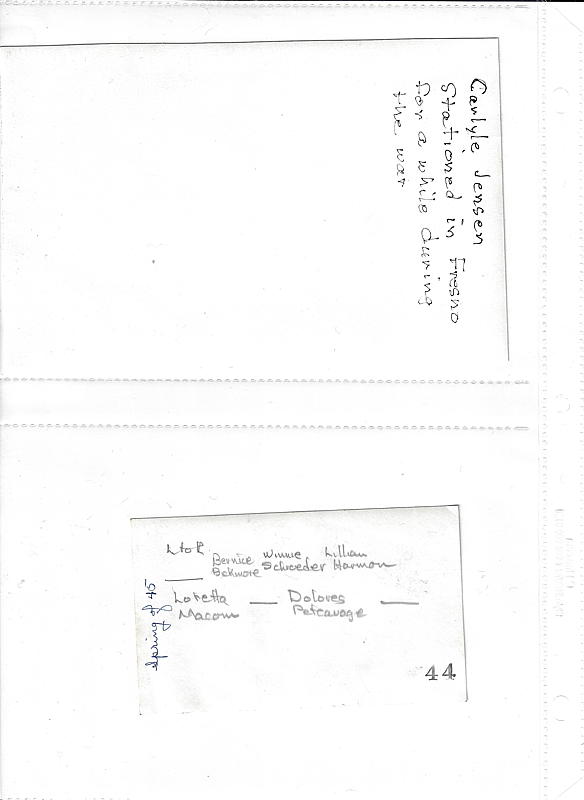 Carlyle Jensen
Stationed in Fresno
for a while during
the war
L to R
Bernice Winnie Lillian
Schroeder Harmon
Loretta — Dolores —
Macom Petcavage
spring of 45
44